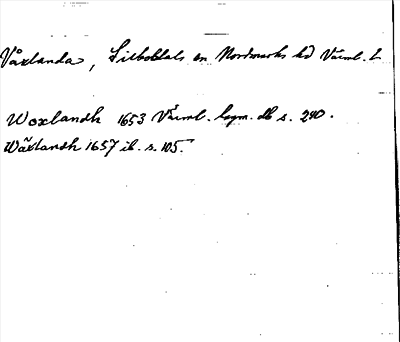 Våxlanda, Silbodals sn Nordmarks hd Värml. L
Woxlandh 1653 Värml. lagm. db s. 290.
Wåxlandh 1657 ib. s. 105.